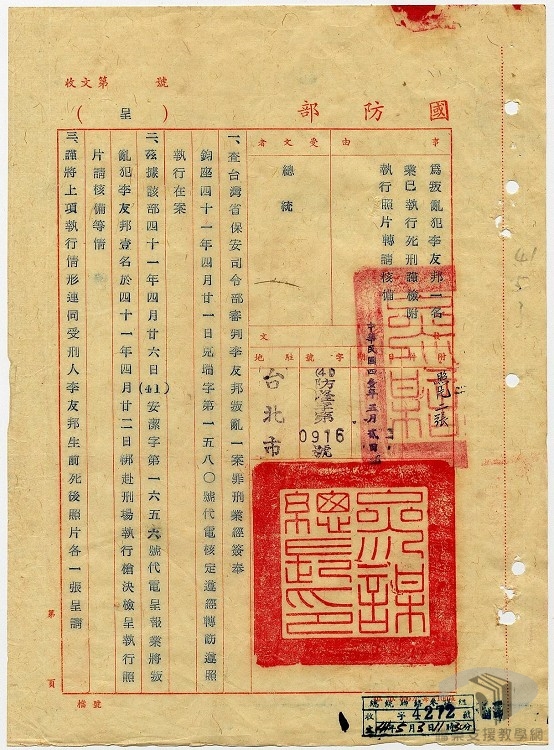 收文第　號
國防部
（呈）
事由
為叛亂犯李友邦一名
業已執行死刑謹檢附
執行照片轉請核備
受文者
總統
附件
照片二張
日期
中華民國四壹年五月貳日
字號
(41)防隆季第
0916號
駐地
台北市
一、查台灣省保安司令部審判李友邦叛亂一案罪刑業經簽奉
鈞座四十一年四月廿一日兗瑞字第一五八〇號代電核定遵經轉飭遵照
執行在案
二、茲據該部四十一年四月廿六日(41)安潔字第一六五六號代電呈報業將叛
亂犯李友邦壹名於四十一年四月廿二日綁赴刑場執行槍決檢呈執行照
片請核備等情
三、謹將上項執行情形連同受刑人李友邦生前死後照片各一張呈請
參謀總長印
41
5
3
第　頁
檔號
收　字4272號
41年5月3日11時